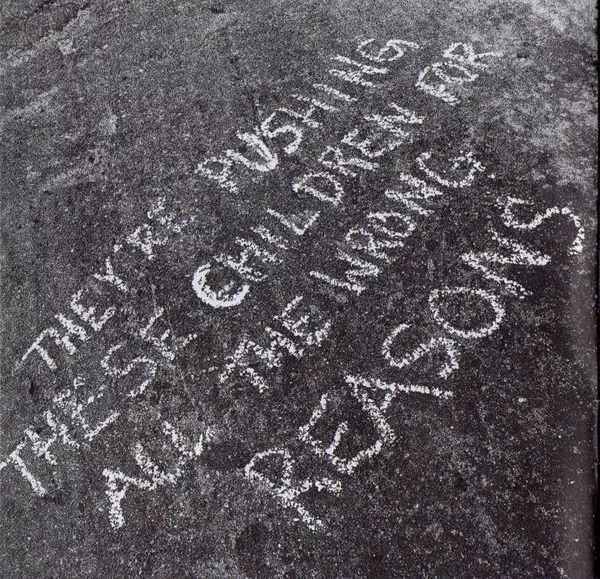 THEY'RE PUSHING
THESE CHILDREN FOR
ALL THE WRONG
REASONS